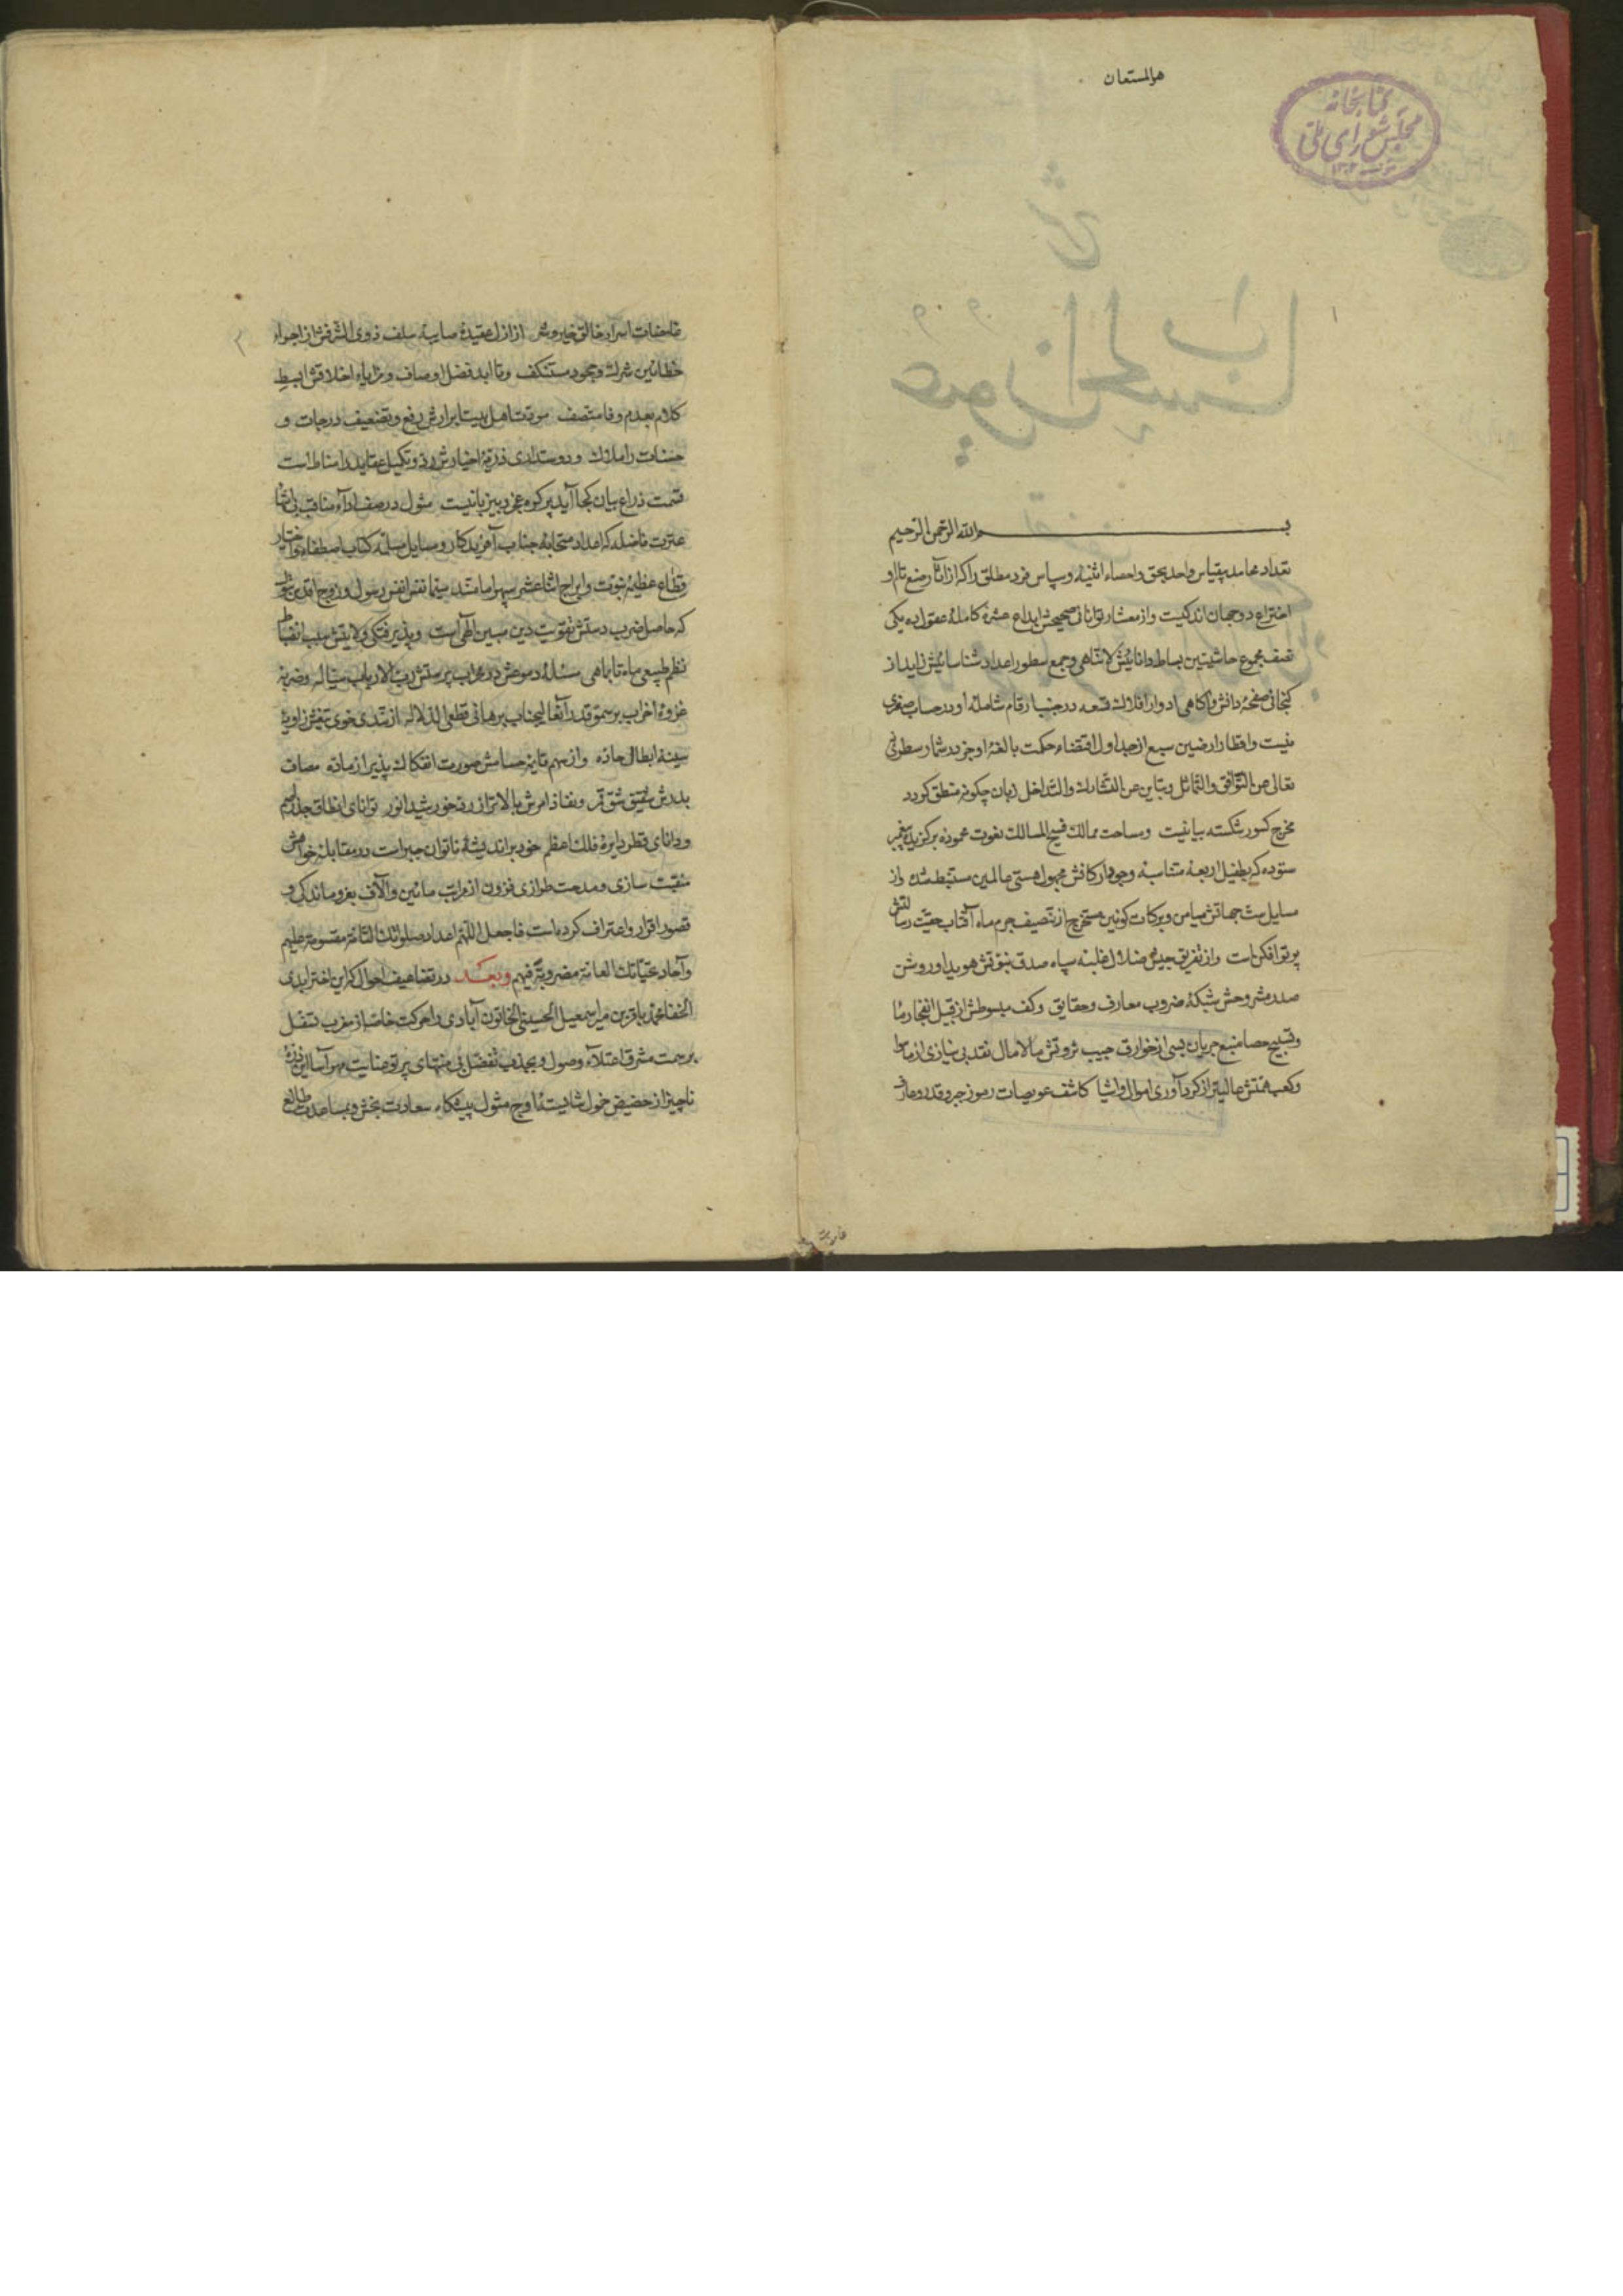 هوالمستعان
کتابخانه
مجلس شورای ملی
۱
بسم الله الرحمن الرحیم
تعداد محامد بیقیاس واحد بحق و احصاء اثنیه و سپاس فرد مطلق را که از آثار صنع تام او
اختراع دو جهان اندکیست و از معشار توانائی صحیحش ابداع عشرهٔ کاملهٔ عقول ده یکی
نصف مجموع حاشیتین بساط دانائیش لاتناهی و جمع سطور اعداد شناسائیش زاید از
کنجائی صفحهٔ دانش و آکاهی ادوار افلاک تسعه در جنب ارقام شامله او در حساب صفری
نیست و اقطار ارضین سبع از جداول اقتضاء حکمت بالغهٔ او جز در شمار سطر نی
تعالی عن التوافق والتماثل و تباین عن التشارک والتداخل زبان چکونه منطق کردد
مخرج کسور شکسته بیانیست و مساحت ممالک فسیح المسالک نعوت عموده برکزیده پیغمبر
ستوده که بطفیل اربعهٔ متناسبهٔ وجود ارکانش مجهول هستی عالمین مستنبط شده و از
مسایل ست جهاتش میامن و برکات کونین مستخرج از تنصیف جرم ماه آفتاب حقیّت رسالتش
پرتو افکن است و از تفریق جیش ضلال غلبهٔ سپاه صدق نبوتش هویدا و روشن
صدر مشروحش شبکهٔ ضروب معارف و حقایق و کف مبسوطش از قبیل انفجار ما
و تسبیح حصا منبع جریان بسی از خوارق جیب ثروتش مالامال نقد بی نیازی از ماسوا
و کعب همتش عالیتر از کردآوری اموال و اشیا کاشف عویصات رموز جبر و قدر و عارف
۲
غامضات اسرار خالق خیر و شر از ازل عقیدهٔ صایبهٔ سلف ذوی الشرفش از اجراء
خطائین شرک و جحود مستنکف و تا ابد فضل اوصاف و مزایاء اخلاقش ابسط
کلام بعدم وفا متصف مودت اهل بیت ابرارش رفع و تضعیف درجات و
حسنات را ملاک و دوستداری ذریهٔ اخیارش رد و تکمیل عقاید را مناط است
قسمت ذراع بیان کجا آید پرکره عجز دبیر بانیست مثول در صف آراء مناقب بی‌انتها
عترت فاضله که اعداد متحابهٔ جناب آفریدکار و سایل مسلمهٔ کتاب اصطفاء و اختیار
قطاع عظیمهٔ نبوت و ابراج اثنا عشر سپهر امامتند سیما نفس انفس رسول و زوج اقدس بتول
که حاصل ضرب دستش تقویت دین مبین الهی است و پذیرفتکی ولایتش سبب انضباط
نظم طبیعی ماه تا بماهی سلسلهٔ دموعش در محراب پرستش رب الارباب میتاله و ضربهٔ
غزوهٔ احزاب بر سمو قدر آنعالیجناب برهانی قطعی الدلاله از تندی خوی تیغش زاویهٔ
سینهٔ ابطال حاده و از سهم قاینهٔ حسامش صورت انفکاک پذیر از ماده مصاف
بدرش شقیق شق قمر و نفاذ امرش بالاتر از رد خورشید انور توانای انطاق جذر اصم
و دانای قطر دایرهٔ فلک اعظم خود براندیشهٔ ناتوان جبر است در مقابلهٔ خواهش
منقبت سازی و مدحت طرازی فزون از مراتب مائین و آلاف بفروماندکی و
قصور اقرار و اعتراف کرده است فاجعل اللهم اعداد صلواتک التامة مقسومة علیهم
و آحاد تحیّاتک العامة مضروبة فیهم وبعد در تضاعیف احوال که این اختر ایدی
الخفا محمد باقر بن میر اسمعیل الحسینی الخاتون آبادی را حرکت خاصه از مغرب تنفل
بر سمت مشرق اعتلاء وصول و بجذب تفضل بی منتهای پرتو عنایت مهر آسا این ذرهٔ
ناچیز از حضیض خمول شایستهٔ اوج مثول پیشکاه سعادت بخش و بمساعدت طالع